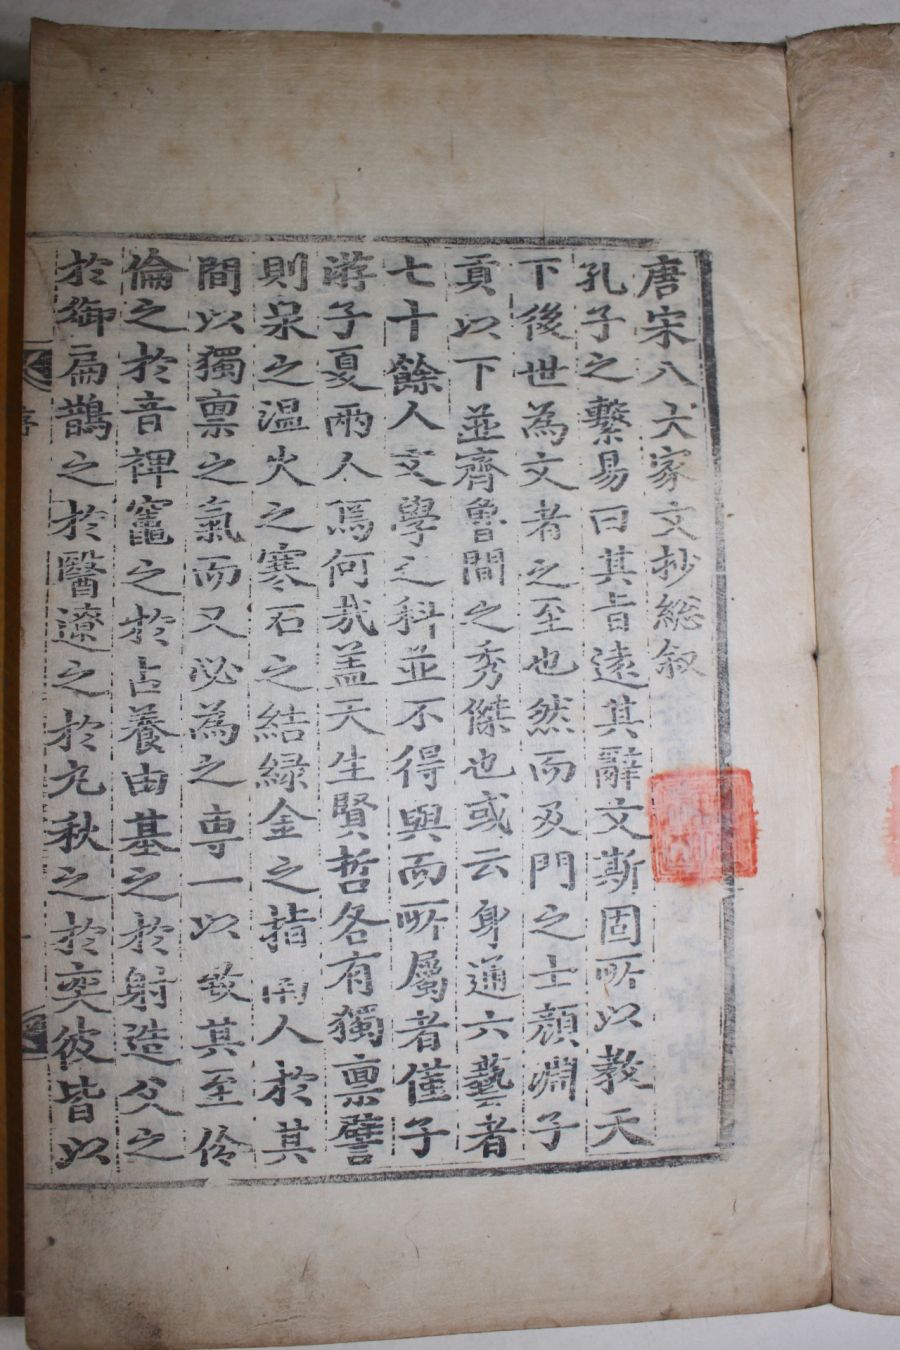 唐宋八大家文抄総叙
孔子之繫易曰其旨遠其辭文斯固所以教天
下後世為文者之至也然而及門之士顔淵子
貢以下並齊魯間之秀傑也或云身通六藝者
七十餘人文學之科並不得與而所屬者僅子
游子夏兩人焉何㢤盖天生賢哲各有獨禀譬
則泉之温火之寒石之結緑金之指南人於其
間以獨禀之氣而又必為之専一以致其至伶
倫之於音裨竈之於占養由基之於射造父之
於御扁鵲之於醫遼之於丸秋之於奕彼皆以
序